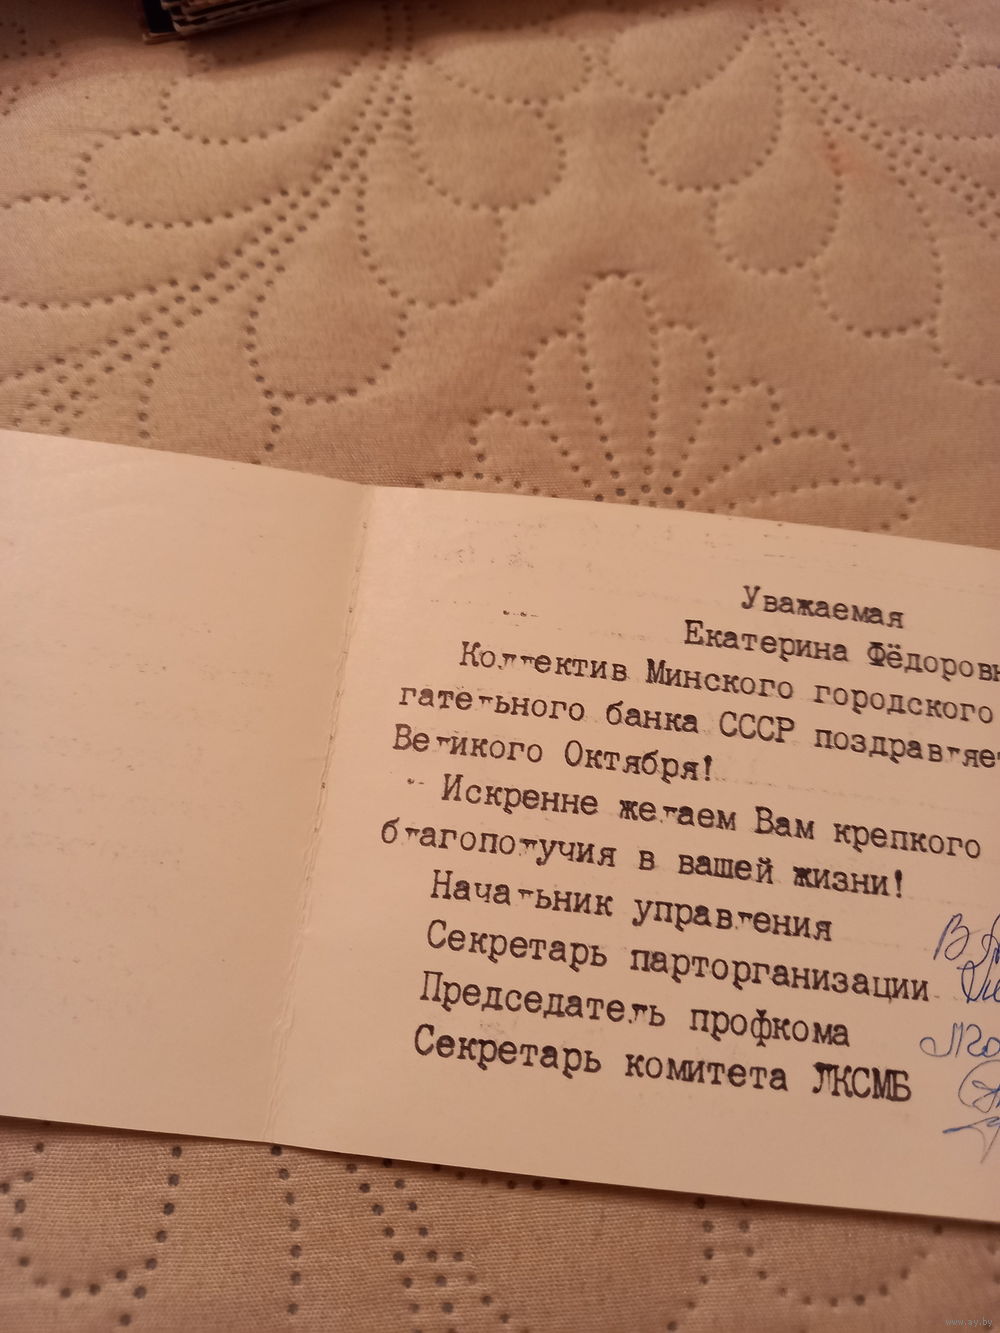 Уважаемая
Екатерина Фёдоровн
Коллектив Минского городского
гательного банка СССР поздравляет
Великого Октября!
Искренне желаем Вам крепкого
благополучия в вашей жизни!
Начальник управления
Секретарь парторганизации
Председатель профкома
Секретарь комитета ЛКСМБ
www.ay.by